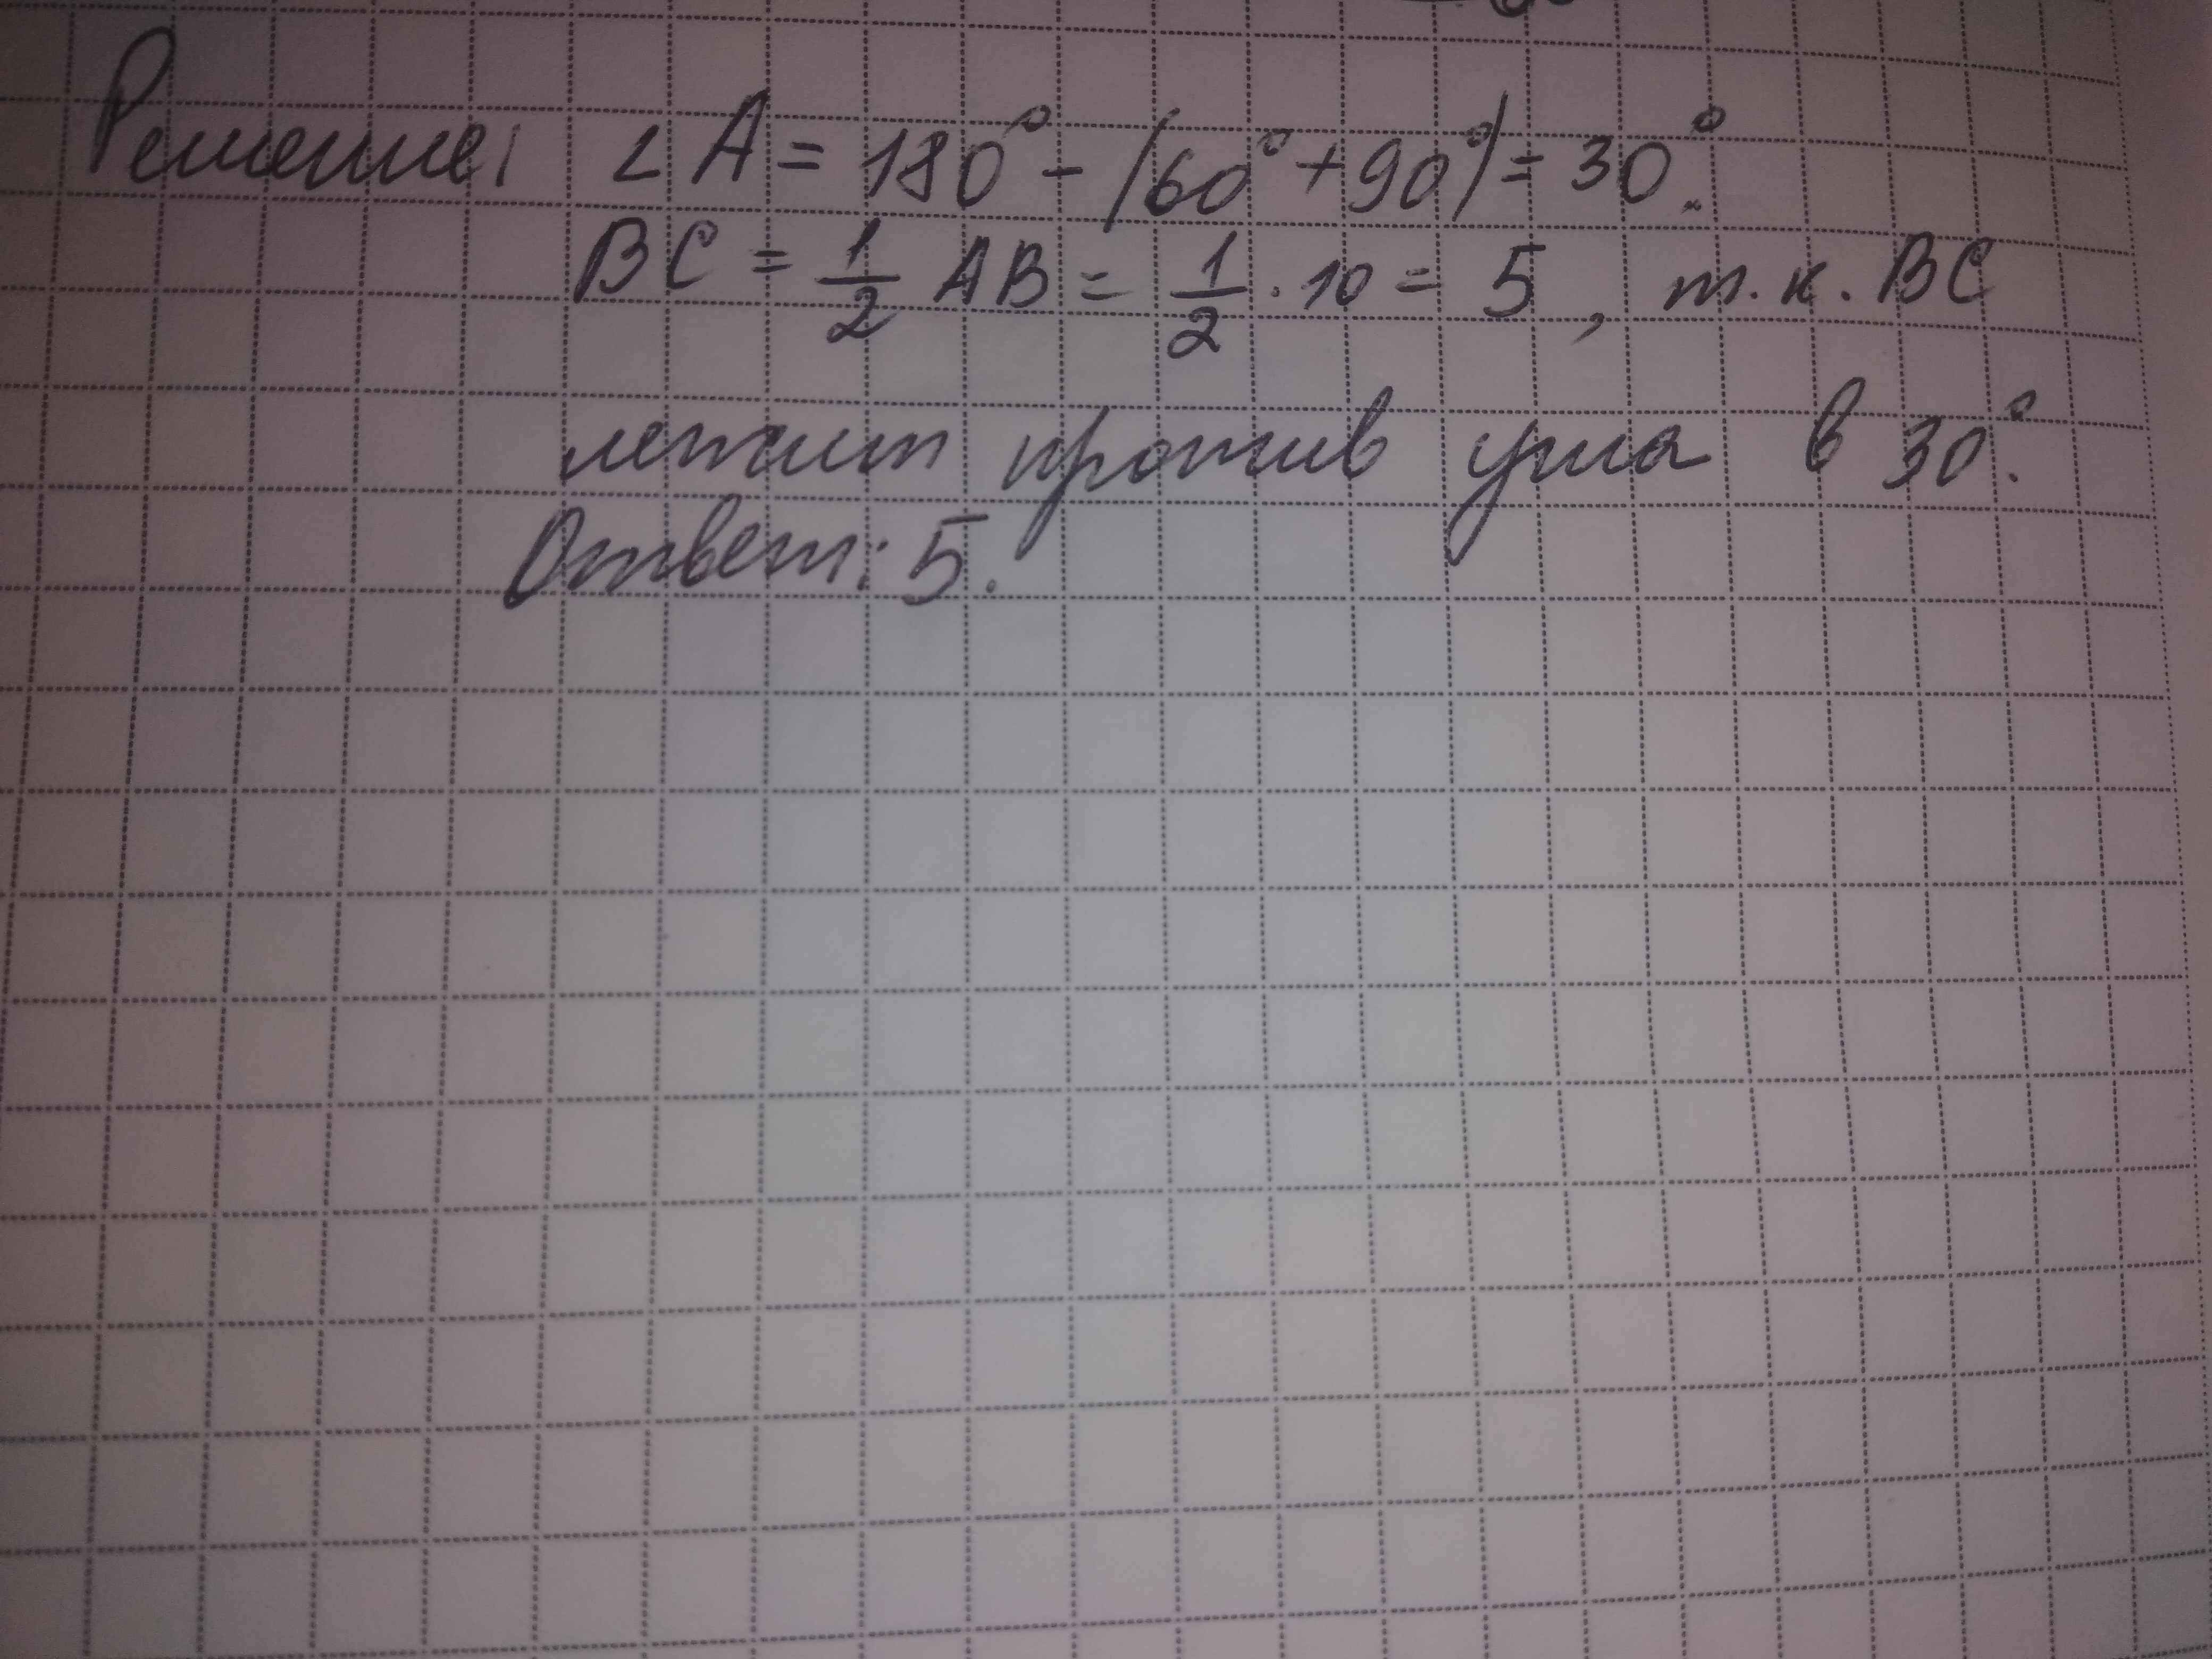 Решение: ∠A = 180° - (60° + 90°) = 30°.
BC = 1/2 AB = 1/2 · 10 = 5, т.к. BC
лежит против угла в 30°.
Ответ: 5.